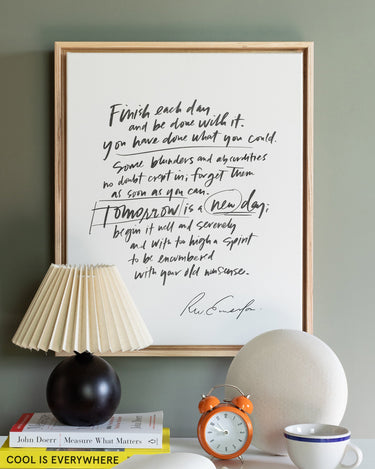 Finish each day
and be done with it.
You have done what you could.
Some blunders and absurdities
no doubt crept in; forget them
as soon as you can.
Tomorrow is a new day;
begin it well and serenely
and with too high a spirit
to be encumbered
with your old nonsense.
John Doerr Measure What Matters
COOL IS EVERYWHERE